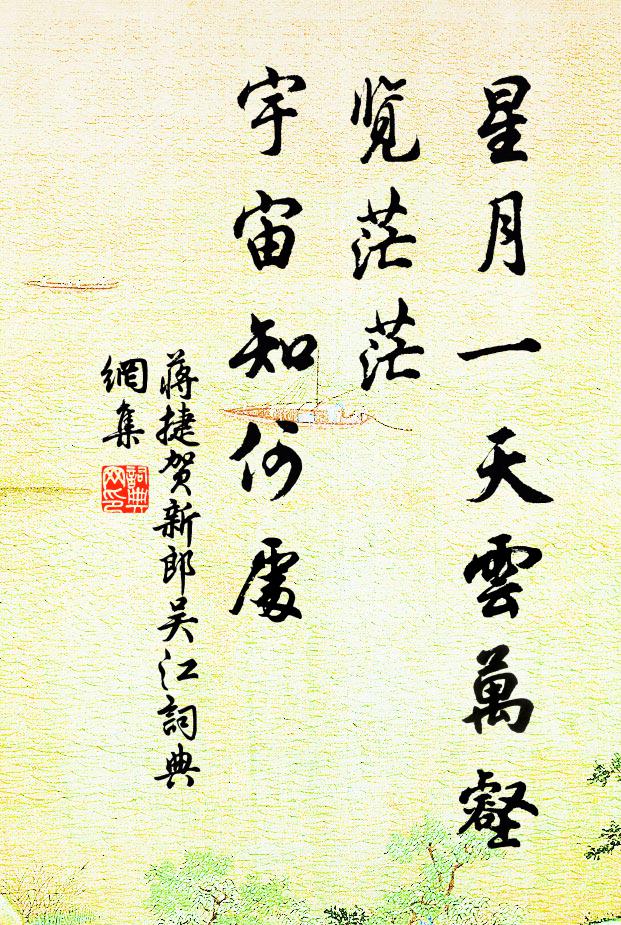 星月一天雲萬壑
覽茫茫
宇宙知何處
蔣捷賀新郎吳江詞典
網集
詞典網印